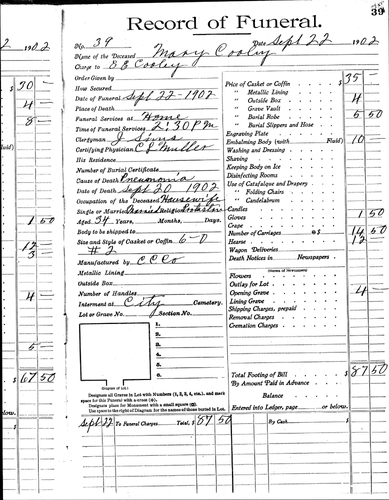 39
Record of Funeral.
No. 39 Date Sept 22 1902
Name of the Deceased Mary Cooley
Charge to B E Cooley
Order Given by
How Secured
Date of Funeral Sept 22-1902
Place of Death
Funeral Services at Home
Time of Funeral Services 2:30 P M
Clergyman J Sims
Certifying Physician C L Muller
His Residence
Number of Burial Certificate
Cause of Death Pneumonia
Date of Death Sept 20 1902
Occupation of the Deceased Housewife
Single or Married Married Religion Protestant
Aged 34 Years, Months, Days.
Body to be shipped to
Size and Style of Casket or Coffin 6-0
#2
Manufactured by C C Co
Metallic Lining
Outside Box
Number of Handles
Interment at City Cemetery.
Lot or Grave No. Section No.
1.
2.
3.
4.
5.
6.
(Diagram of Lot.)
Designate all Graves in Lot with Numbers (1, 2, 3, 4, etc.), and mark space for this Funeral with a cross (+).
Designate place for Monument with a small square (□).
Use space to the right of Diagram for the names of those buried in Lot.
Price of Casket or Coffin $ 35 —
" Metallic Lining
" Outside Box 4 —
" Grave Vault
" Burial Robe 5 50
" Burial Slippers and Hose
Engraving Plate
Embalming Body (with Fluid) 10
Washing and Dressing
Shaving
Keeping Body on Ice
Disinfecting Rooms
Use of Catafalque and Drapery
" Folding Chairs
" Candelabrum
Candles
Gloves 1 50
Crape
Number of Carriages @ $ 14 50
Hearse 12 —
Wagon Deliveries
Death Notices in Newspapers
(Names of Newspapers)
Flowers
Outlay for Lot
Opening Grave 4 —
Lining Grave
Shipping Charges, prepaid
Removal Charges
Cremation Charges
Total Footing of Bill $ 87 50
By Amount Paid in Advance
Balance
Entered into Ledger, page or below.
Sept 22 To Funeral Charges Total, $ 87 50 By Cash $
2 1902
$ 30 —
4 —
8 —
Fluid)
1 50
12
3
4 —
5 —
$ 67 50
below.
$